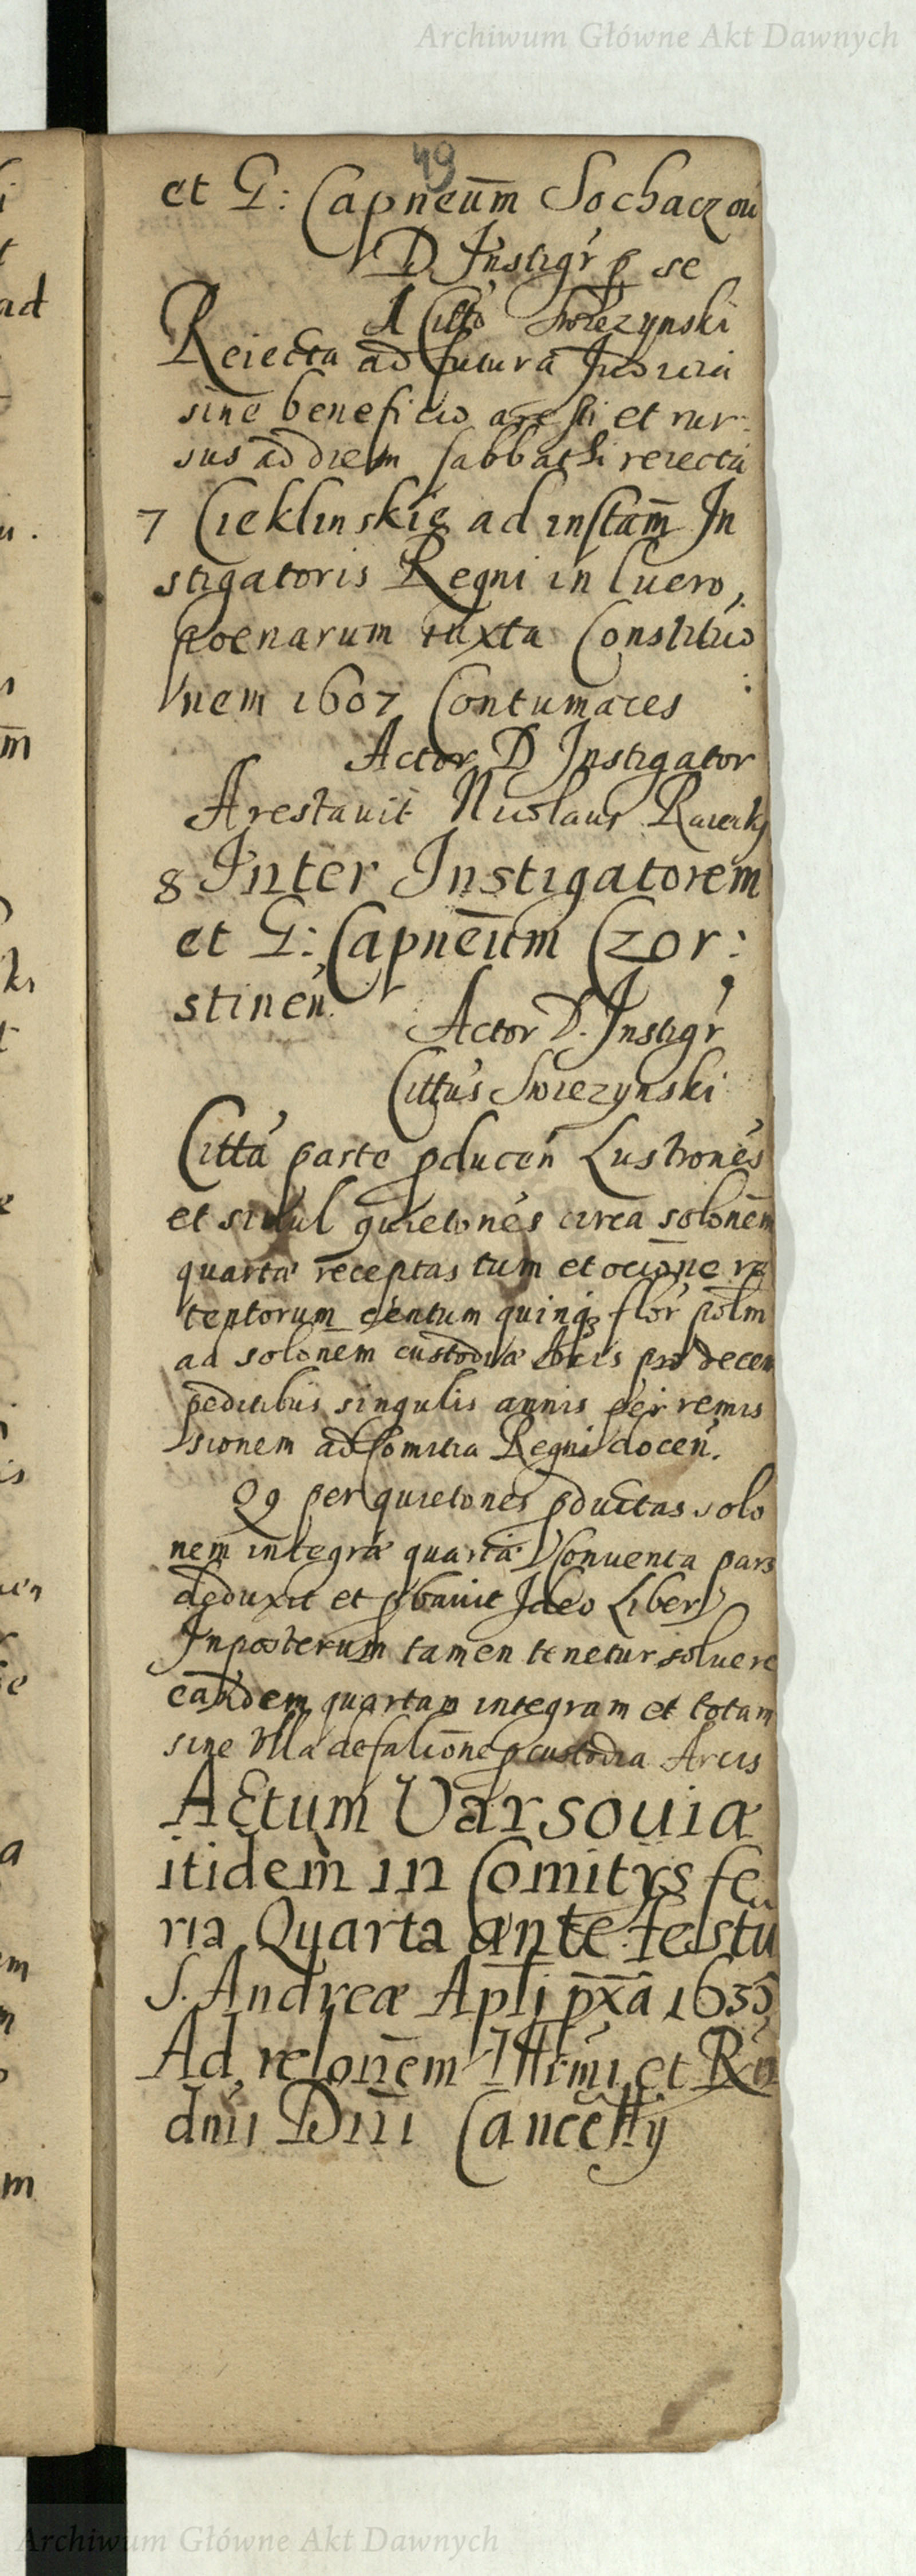 Archiwum Główne Akt Dawnych
49
et G: Capneūm Sochaczou
D Instigr̃ p se
A Citto Swiezynski
Reiecta ad futura Judicia
sine beneficio aresti et rur:
sus ad diem sabbathi reiecta
7 Cieklinskie ad instam̄ In
stigatoris Regni in luero,
poenarum iuxta Constitutio
nem 1607 Contumaces
Actor D Instigator
Arestauit Nicolaus
8 Inter Instigatorem
et G: Capnēum Czor:
stinen̄.
Actor D. Instigr̃
Cittus Swiezynski
Citta parte pducen̄ Lustrones
et simul quietones circa solonem̄
quartæ receptas tum et ōcione re
tentorum centum quinq̨ flor polm̄
ad solonem custodiæ Arcis pro decem
peditibus singulis annis per remis
sionem ad Comitia Regni docen̄.
Qq per quietones pductas solo
nem integræ quartæ Conuenta pars
deduxit et pbauit Ideo Libera
Inposterum tamen tenetur soluere
eandem quartam integram et totam
sine Ulla defalcōne p custodia Arcis
Actum Varsouiæ
itidem in Comitÿs fe
ria Quarta ante festū
S. Andreæ Apli px̄a 1635
Ad relonem̄ Illrmi et Rn
dni Dni Cancellÿ
Archiwum Główne Akt Dawnych